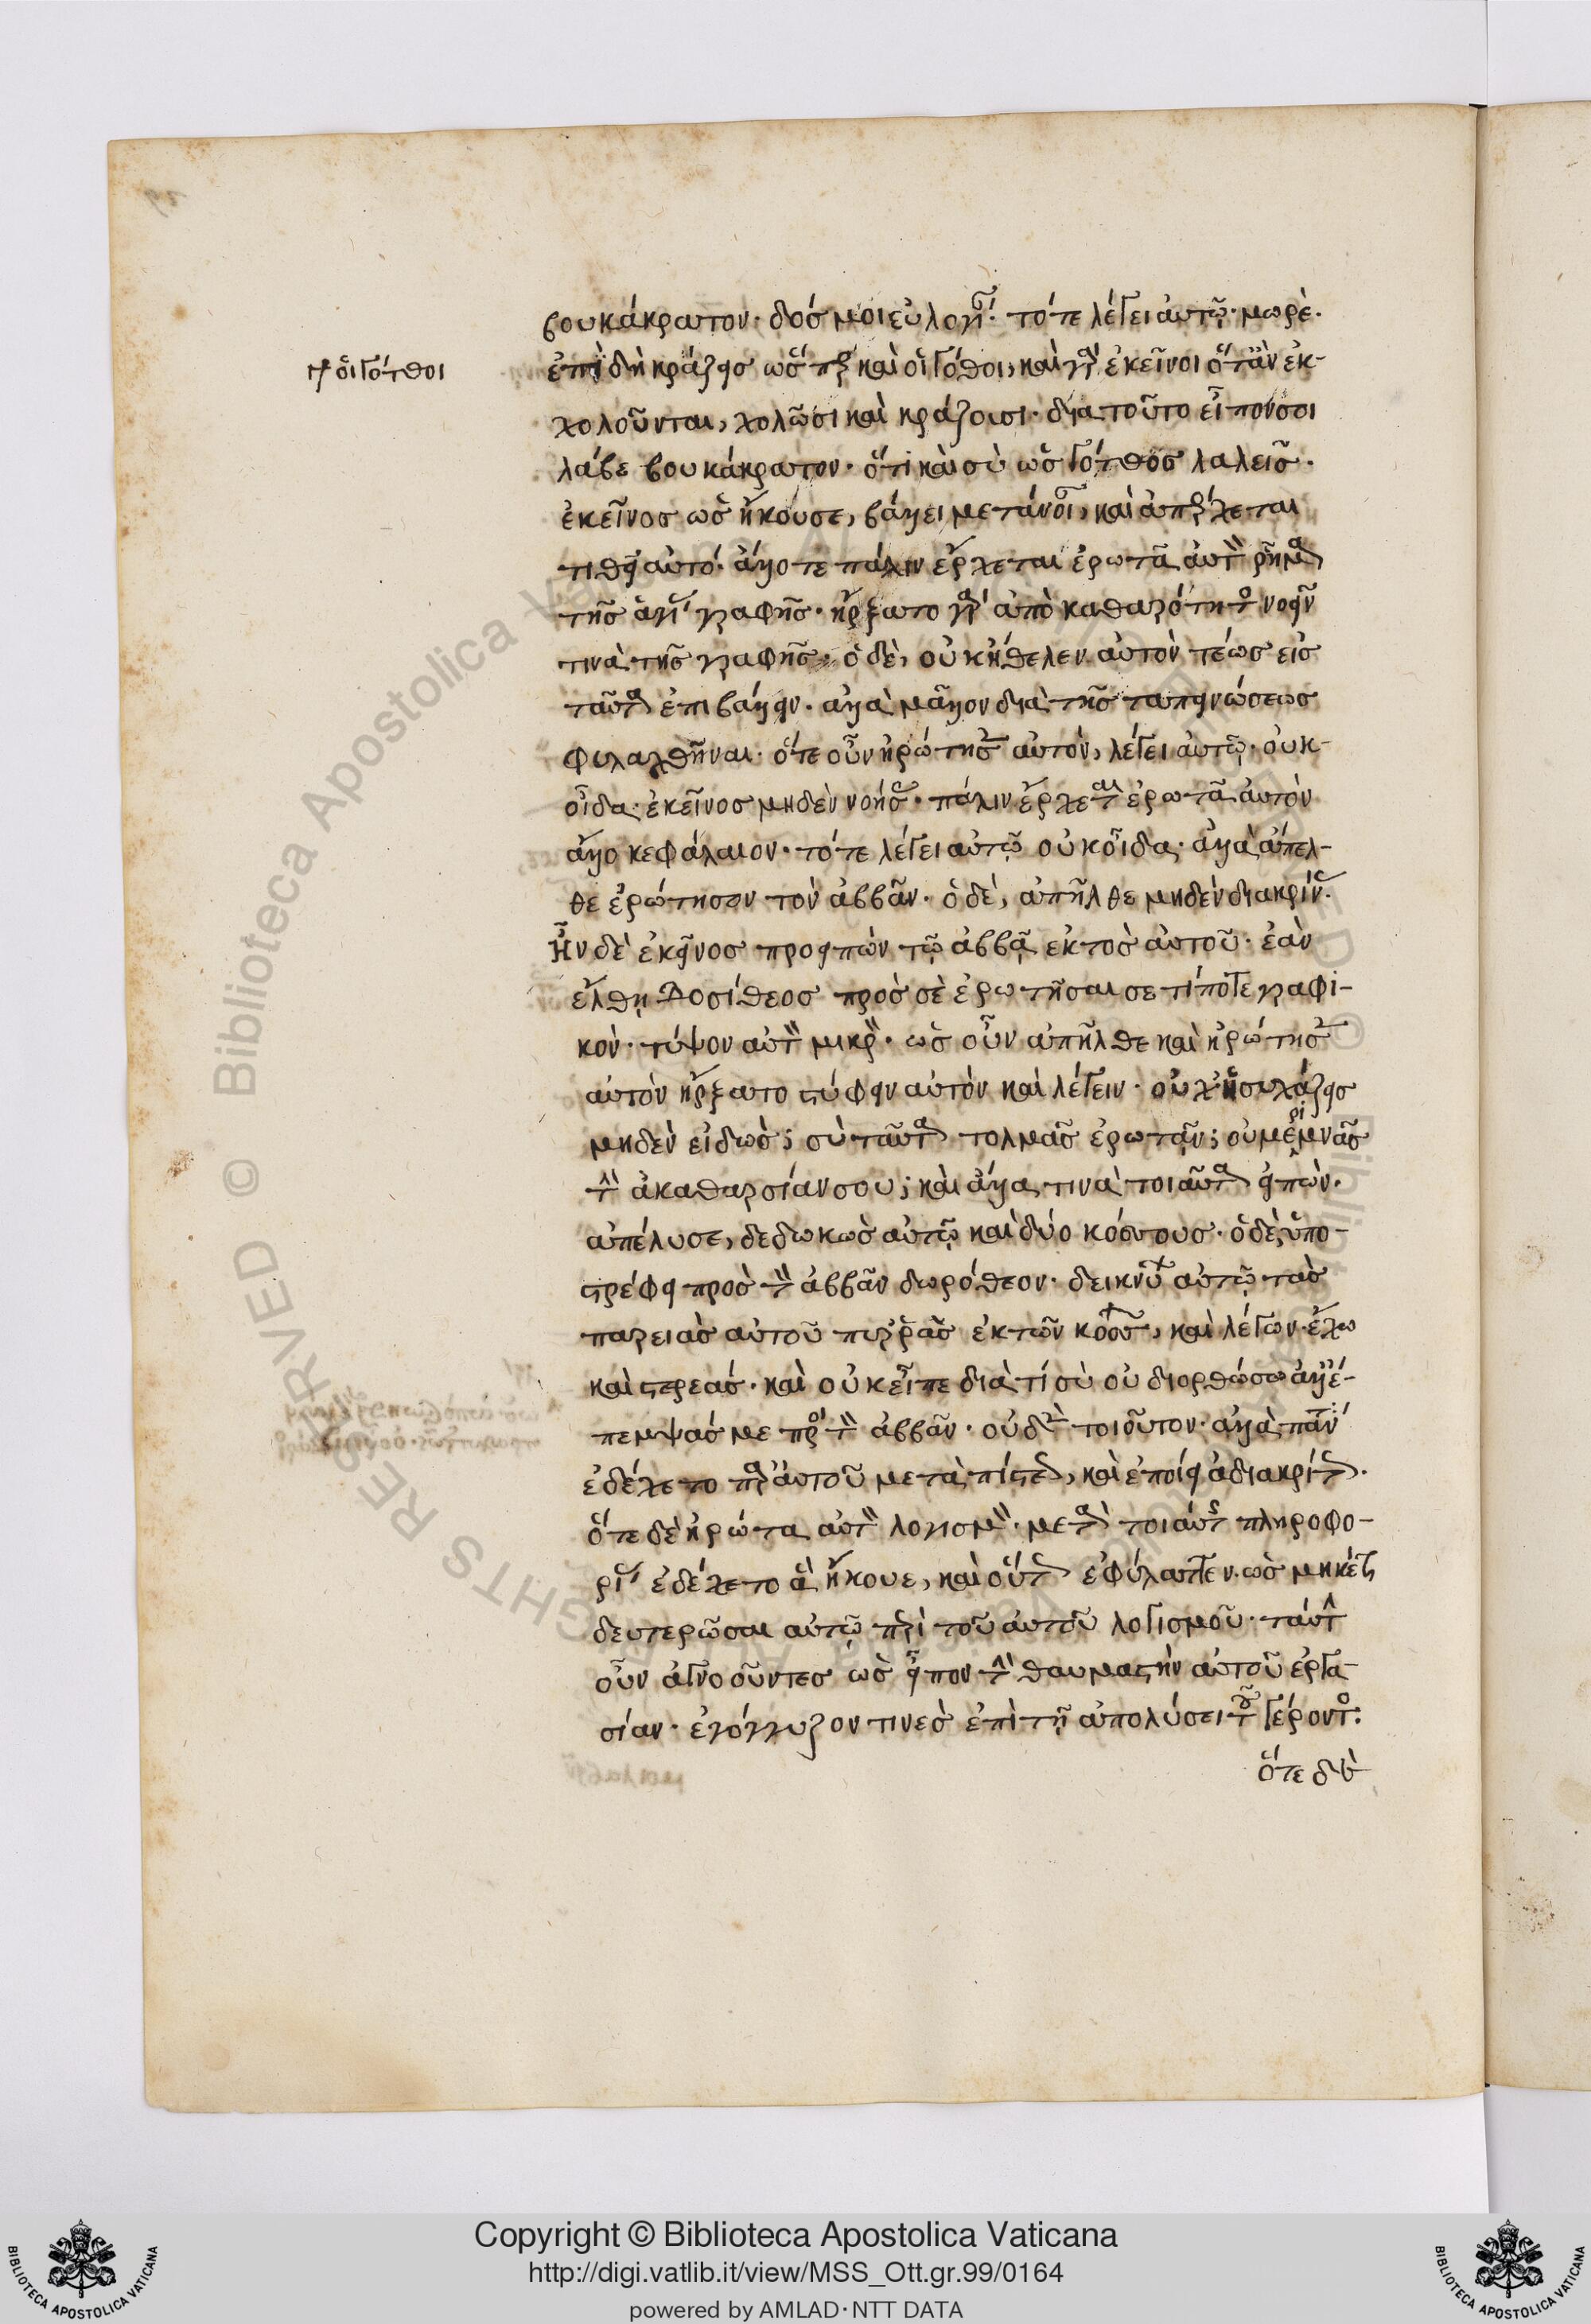 βουκάκρατον· δόσ μοι εὐλογί· τότε λέγει αὐτῷ· μωρὲ·
οἱ Γότθοι
ἐπϊδὴ κράζεισ ὥσπερ καὶ οἱ Γόθοι, καὶ γὰρ ἐκεῖνοι ὅτἂν ἐκ-
χολοῦνται, χολῶσι καὶ κράζουσι· διατοῦτο εἶπόν σοι
λάβε βουκάκρατον· ὅτι καὶ σὺ ὡσ Γότθοσ λαλεῖσ·
ἐκεῖνοσ ὡσ ἤκουσε, βάλλει μετάνοι, καὶ ἀπέρχεται
τιθεῖ αὐτό· ἄλλοτε πάλιν ἔρχεται ἐρωτᾶ αὐτὸν ῥῆμα
τῆσ ἁγί γραφῆσ· ἤρξατο γὰρ ἀπὸ καθαρότητος νοεῖν
τινὰ τῆσ γραφῆσ· ὁ δὲ, οὐκ ἤθελεν αὐτὸν τέωσ εἰσ
ταῦτα ἐπιβάλλειν· ἀλλὰ μᾶλλον διὰ τῆσ ταπεινώσεωσ
φυλαχθῆναι· ὅτε οὖν ἠρώτησεν αὐτὸν, λέγει αὐτῷ· οὐκ-
οἶδα· ἐκεῖνοσ μηδὲν νοήσας· πάλιν ἔρχεται ἐρωτᾶ αὐτὸν
ἄλλο κεφάλαιον· τότε λέγει αὐτῷ οὐκ οἶδα· ἀλλὰ ἄπελ-
θε ἐρώτησον τὸν ἀββᾶν· ὁ δὲ, ἀπῆλθε μηδὲν διακρίνας·
Ἦν δὲ ἐκεῖνοσ προειπὼν τῷ ἀββᾷ ἐκτὸσ αὐτοῦ· ἐὰν
ἔλθῃ Δοσίθεοσ πρὸσ σὲ ἐρωτῆσαι σε τίποτε γραφι-
κὸν· τύψον αὐτὸν μικρὸν· ὡσ οὖν ἀπῆλθε καὶ ἠρώτησεν
αὐτὸν ἤρξατο στύφειν αὐτὸν καὶ λέγειν· οὐχ ἡσυχάζεισ
μηδὲν εἰδὼσ; σὺ ταῦτα τολμᾶσ ἐρωτᾶν; οὐ μεριμνᾶσ
τὴν ἀκαθαρσίαν σου; καὶ ἄλλα τινὰ τοιαῦτα εἰπὼν·
ἀπέλυσε, δεδωκὼσ αὐτῷ καὶ δύο κόσσουσ· ὁ δὲ, ὑπο-
στρέφει πρὸσ τὸν ἀββᾶν δωρόθεον· δεικνύων αὐτῷ τὰσ
παρειὰσ αὐτοῦ πυρρὰσ ἐκ τῶν κόσσων, καὶ λέγων· ἔχω
καὶ στερεάσ· καὶ οὐκ εἶπε διὰ τί σὺ οὐ διορθώσω ἀλλ' ἔ-
πεμψάσ με πρὸς τὸν ἀββᾶν· οὐδὲν τοιοῦτον· ἀλλὰ πάντα
ἐδέχετο παρ' αὐτοῦ μετὰ πίστεως, καὶ ἐποίει ἀδιακρίτως·
ὅτε δὲ ἠρώτα αὐτὸν λογισμὸν· μετὰ τοιαύτης πληροφο-
ρίας ἐδέχετο ἃ ἤκουε, καὶ οὕτως ἐφύλαττεν· ὡσ μηκέτι
δευτερῶσαι αὐτῷ περὶ τοῦ αὐτοῦ λογισμοῦ· ταύτην
οὖν ἀγνοοῦντεσ ὡσ εἶπον τὴν θαυμαστὴν αὐτοῦ ἐργα-
σίαν· ἐγόγγυζον τινεσ ἐπὶ τῇ ἀπολύσει τοῦ Γέροντος:
ὅτε δὲ
Copyright © Biblioteca Apostolica Vaticana
http://digi.vatlib.it/view/MSS_Ott.gr.99/0164
powered by AMLAD·NTT DATA